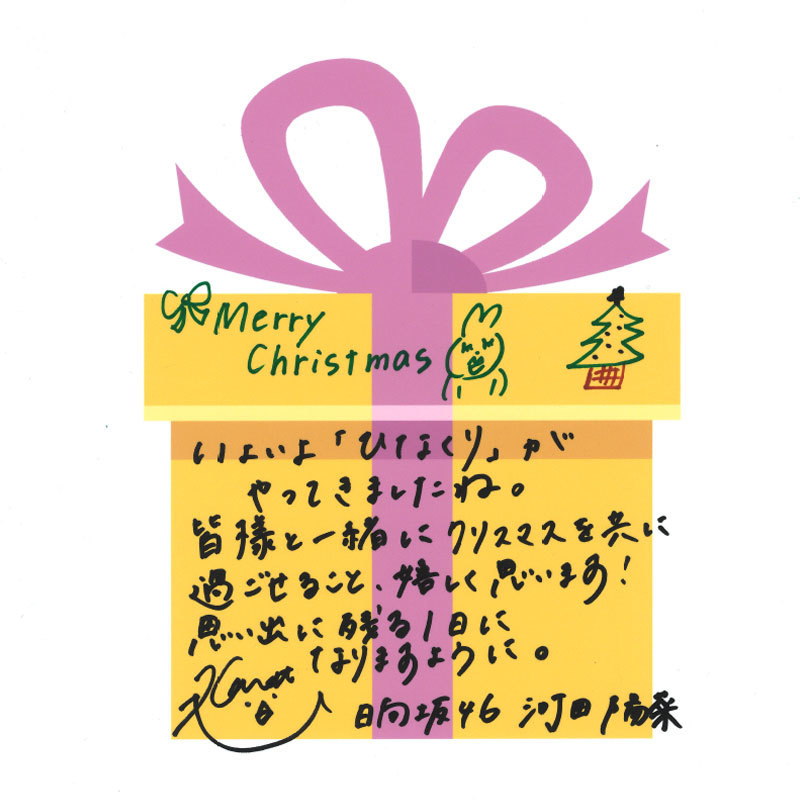 Merry
Christmas
いよいよ「ひなくり」が
やってきましたね。
皆様と一緒にクリスマスを共に
過ごせること、嬉しく思います!
思い出に残る1日に
なりますように。
日向坂46 河田陽菜